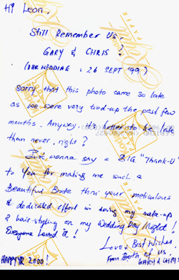 Hi Leon.
Still Remember Us.
GARY & CHRIS!
(OUR WEDDING : 26 SEPT 1997)
Sorry that this photo came so late
as we were very tied-up the past few
months. Anyway, it's better to be late
than never, right?
Just wanna say a BIG "Thank-U"
to You for making me such a
Beautiful Bride thru' your meticulous
& dedicated effort in doing my make-up
& hair-styling on my Wedding Day Night!
Everyone Loved it!
Love & Best Wishes,
From Both of Us.
HAPPY 2000!
GARY &